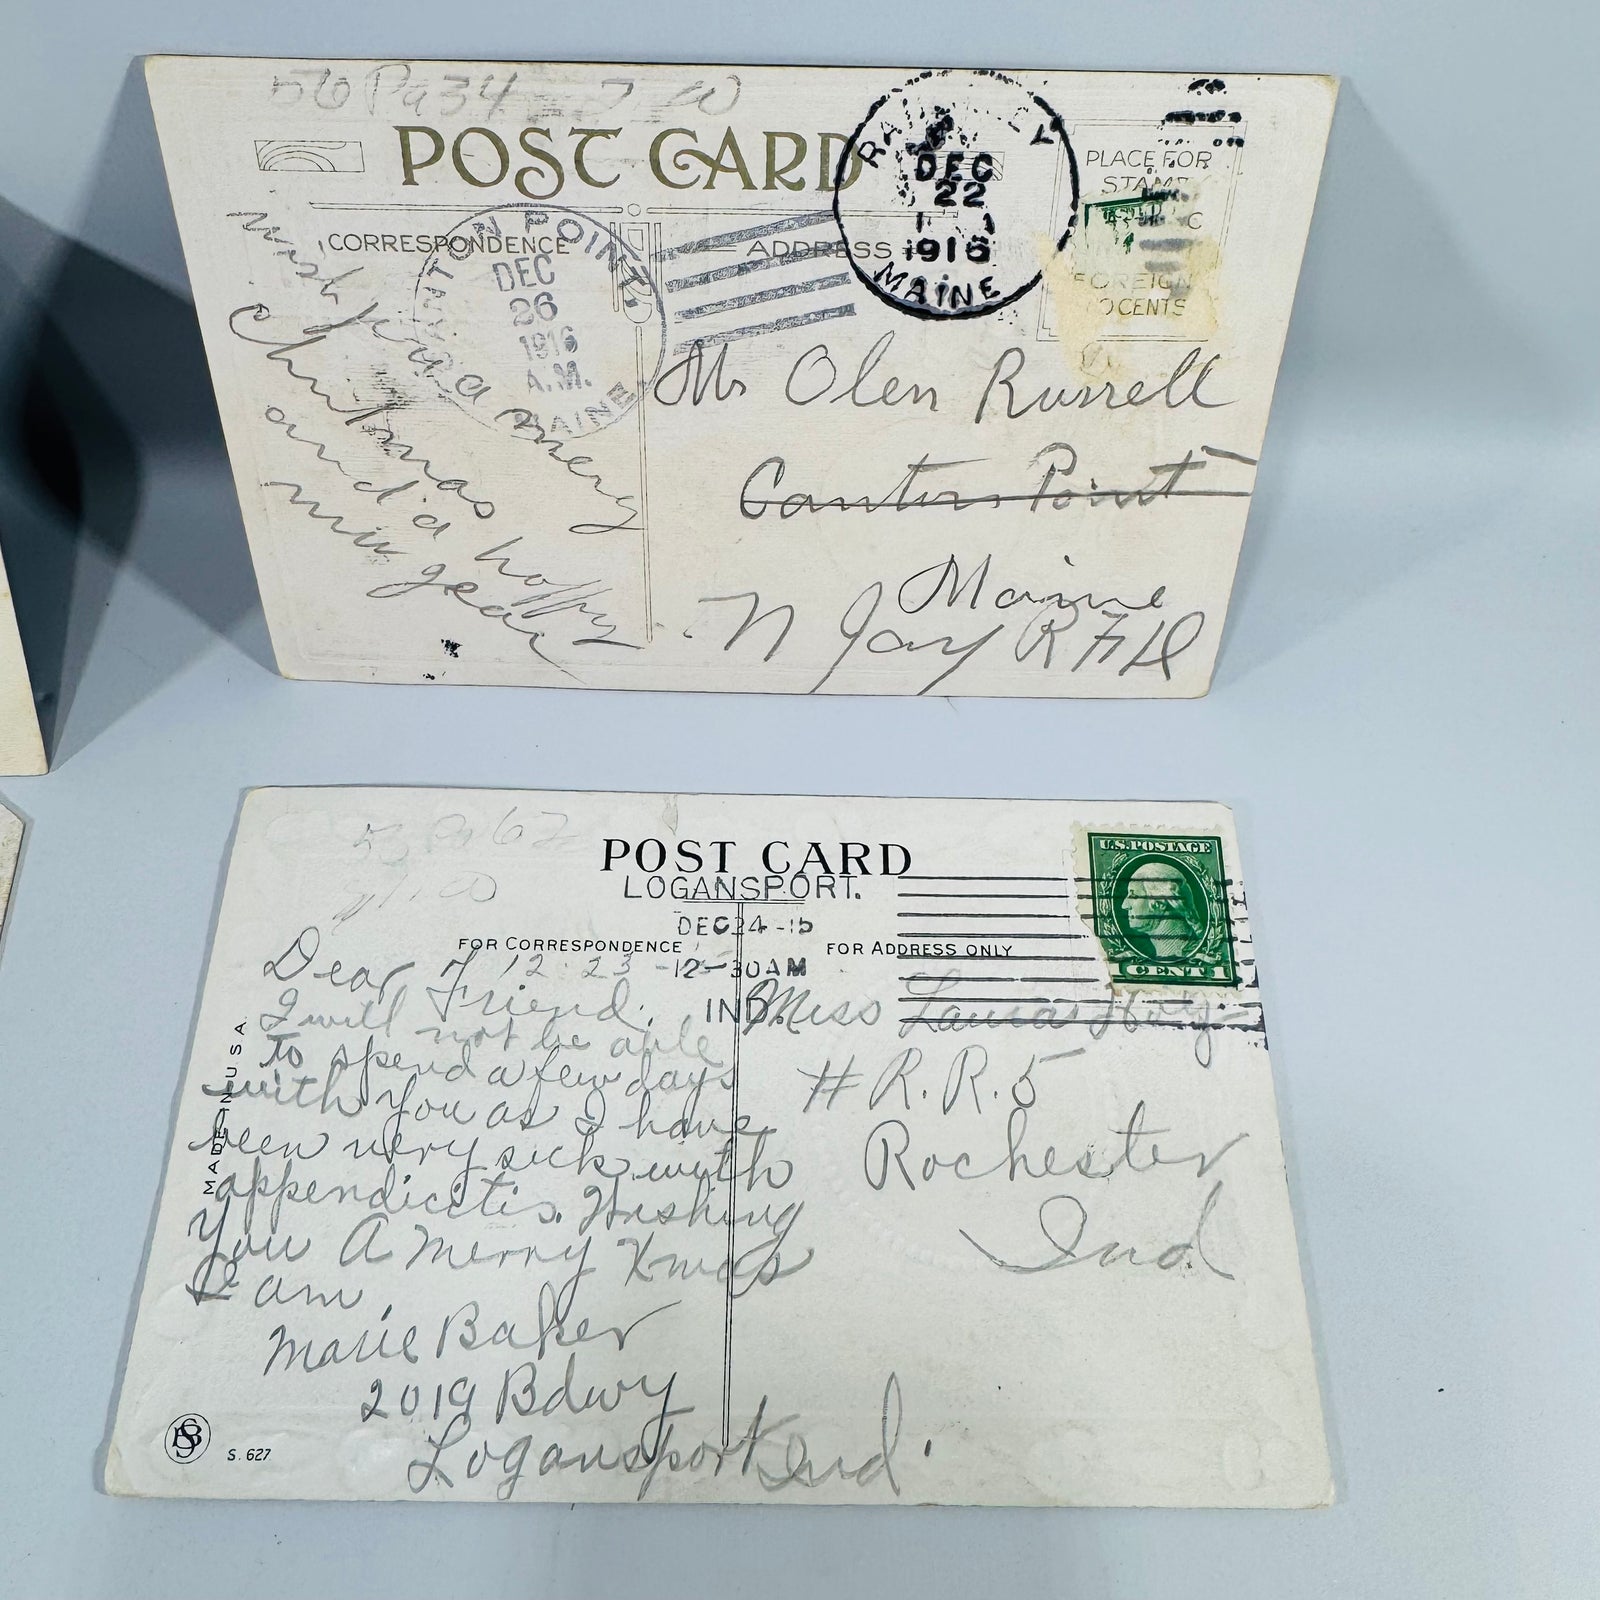 56 Pg 34
POST CARD
DEC
22
1916
MAINE
PLACE FOR
STAMP
FOREIGN
CENTS
CORRESPONDENCE
ADDRESS
CANTON POINT
DEC
26
1916
A.M.
MAINE
wish you a mery
Christmas
and a happy
new year
Mr Olen Russell
Canton Point
Maine
N Jay R F D
POST CARD
LOGANSPORT.
DEC 24 -15
12-30AM
IND.
U.S. POSTAGE
1 CENT 1
FOR CORRESPONDENCE
FOR ADDRESS ONLY
12-23-
Dear Friend,
I will not be able
to spend a few days
with you as I have
been very sick with
appendicitis. Wishing
you A Merry Xmas
I am,
Marie Baker
2019 Bdwy
Logansport Ind.
Miss Laura
# R. R. 5
Rochester
Ind
MADE IN U S A.
S. 627